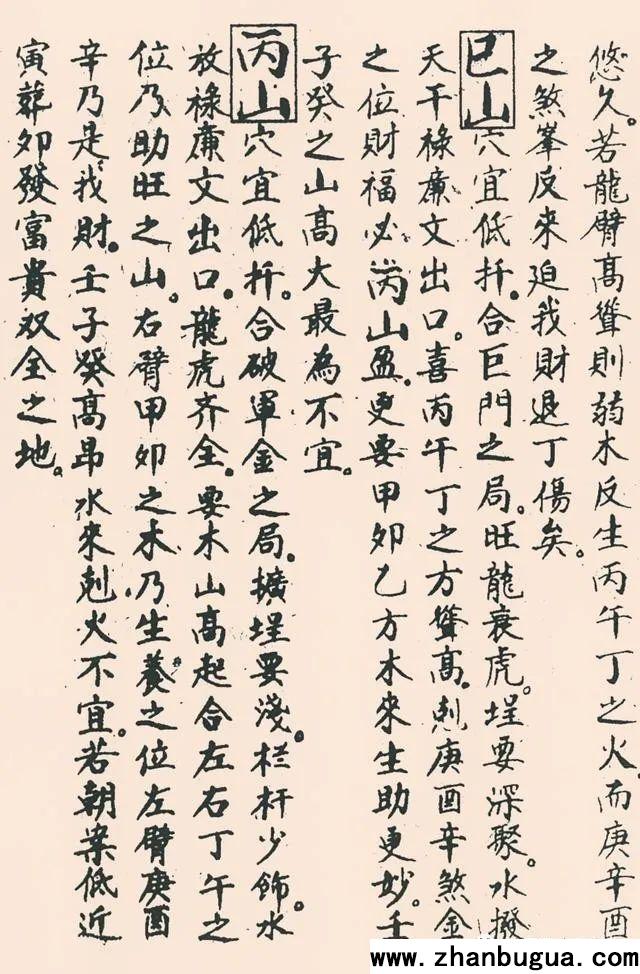 悠久。若龍臂高聳則弱木反生丙午丁之火而庚辛酉
之煞峯反來迫我財退丁傷矣。
巳山穴宜低扦。合巨門之局。旺龍衰虎。埕要深聚。水撥
天干祿廉文出口。喜丙午丁之方聳高。剋庚酉辛煞金
之位財福必满山盈。更要甲卯乙方木來生助更妙。壬
子癸之山高大最為不宜。
丙山穴宜低扦。合破軍金之局。擴埕要淺。栏杆少飾。水
放祿廉文出口。龍虎齐全。要木山高起合左右丁午之
位乃助旺之山。右臂甲卯之木乃生養之位左臂庚酉
辛乃是我財。壬子癸高昂水來剋火不宜。若朝案低近
寅葬卯發富貴双全之地。
www.zhanbugua.com